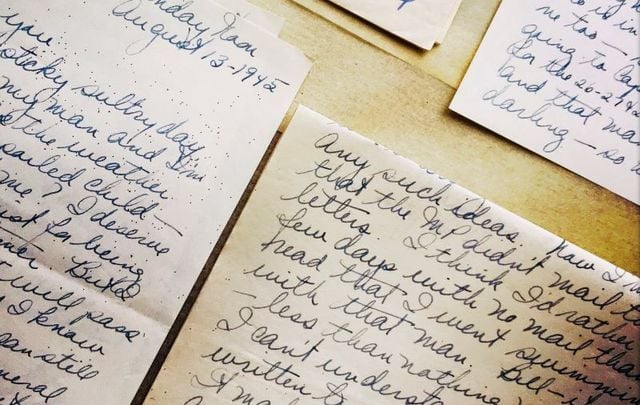 nday Noon
August 13-1945
you
sticky sultry day
my man and I'm
the weather
spoiled child—
me? I deserve
just for being
Bixed
will pass
I know
can still
neral
Any such ideas. Now I
that the MP didn't mail t
letters. I think I'd rather
few days with no mail tha
head that I went swimmin
with that man. Bill—i
—less than nothing
I can't understa
written to
I ma
no too—
going to Cap
for the 20-21-
(and that ma
darling— so